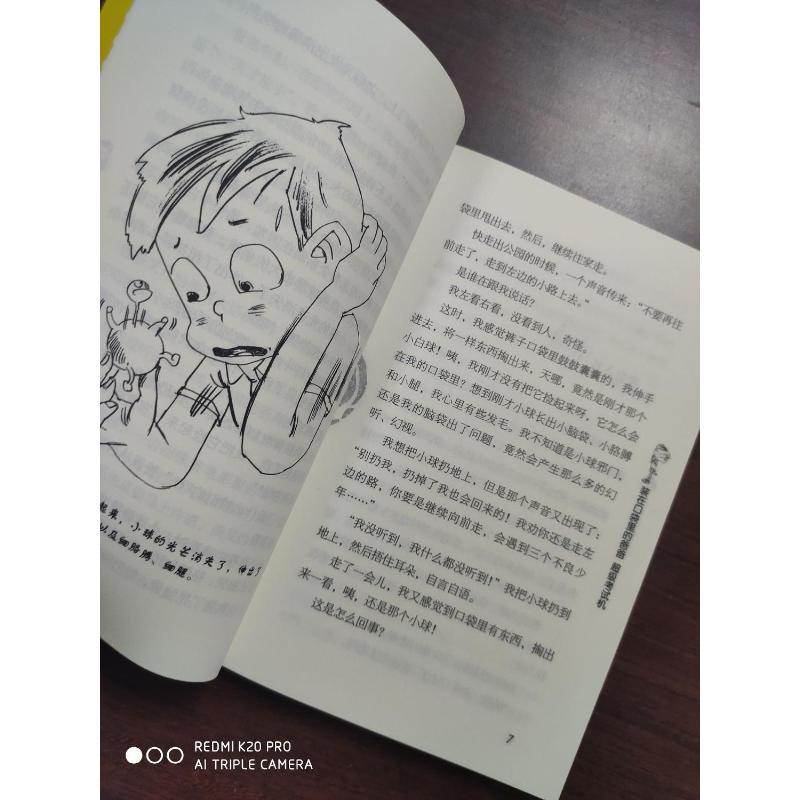 起来，小球的光芒消失了，伸出了
以及细胳膊、细腿。
袋里甩出去，然后，继续往家走。
快走出公园的时候，一个声音传来：“不要再往
前走了，走到左边的小路上去。”
是谁在跟我说话？
我左看右看，没看到人，奇怪。
这时，我感觉裤子口袋里鼓鼓囊囊的，我伸手
进去，将一样东西掏出来，天哪，竟然是刚才那个
小白球！咦，我刚才没有把它捡起来呀，它怎么会
在我的口袋里？想到刚才小球长出小脑袋、小胳膊
和小腿，我心里有些发毛。我不知道是小球邪门，
还是我的脑袋出了问题，竟然会产生那么多的幻
听、幻视。
我想把小球扔地上，但是那个声音又出现了：
“别扔我，扔掉了我也会回来的！我劝你还是走左
边的路，你要是继续向前走，会遇到三个不良少
年……”
“我没听到，我什么都没听到！”我把小球扔到
地上，然后捂住耳朵，自言自语。
走了一会儿，我又感觉到口袋里有东西，掏出
来一看，咦，还是那个小球！
这是怎么回事？
装在口袋里的爸爸 超级考试机
7
REDMI K20 PRO
AI TRIPLE CAMERA